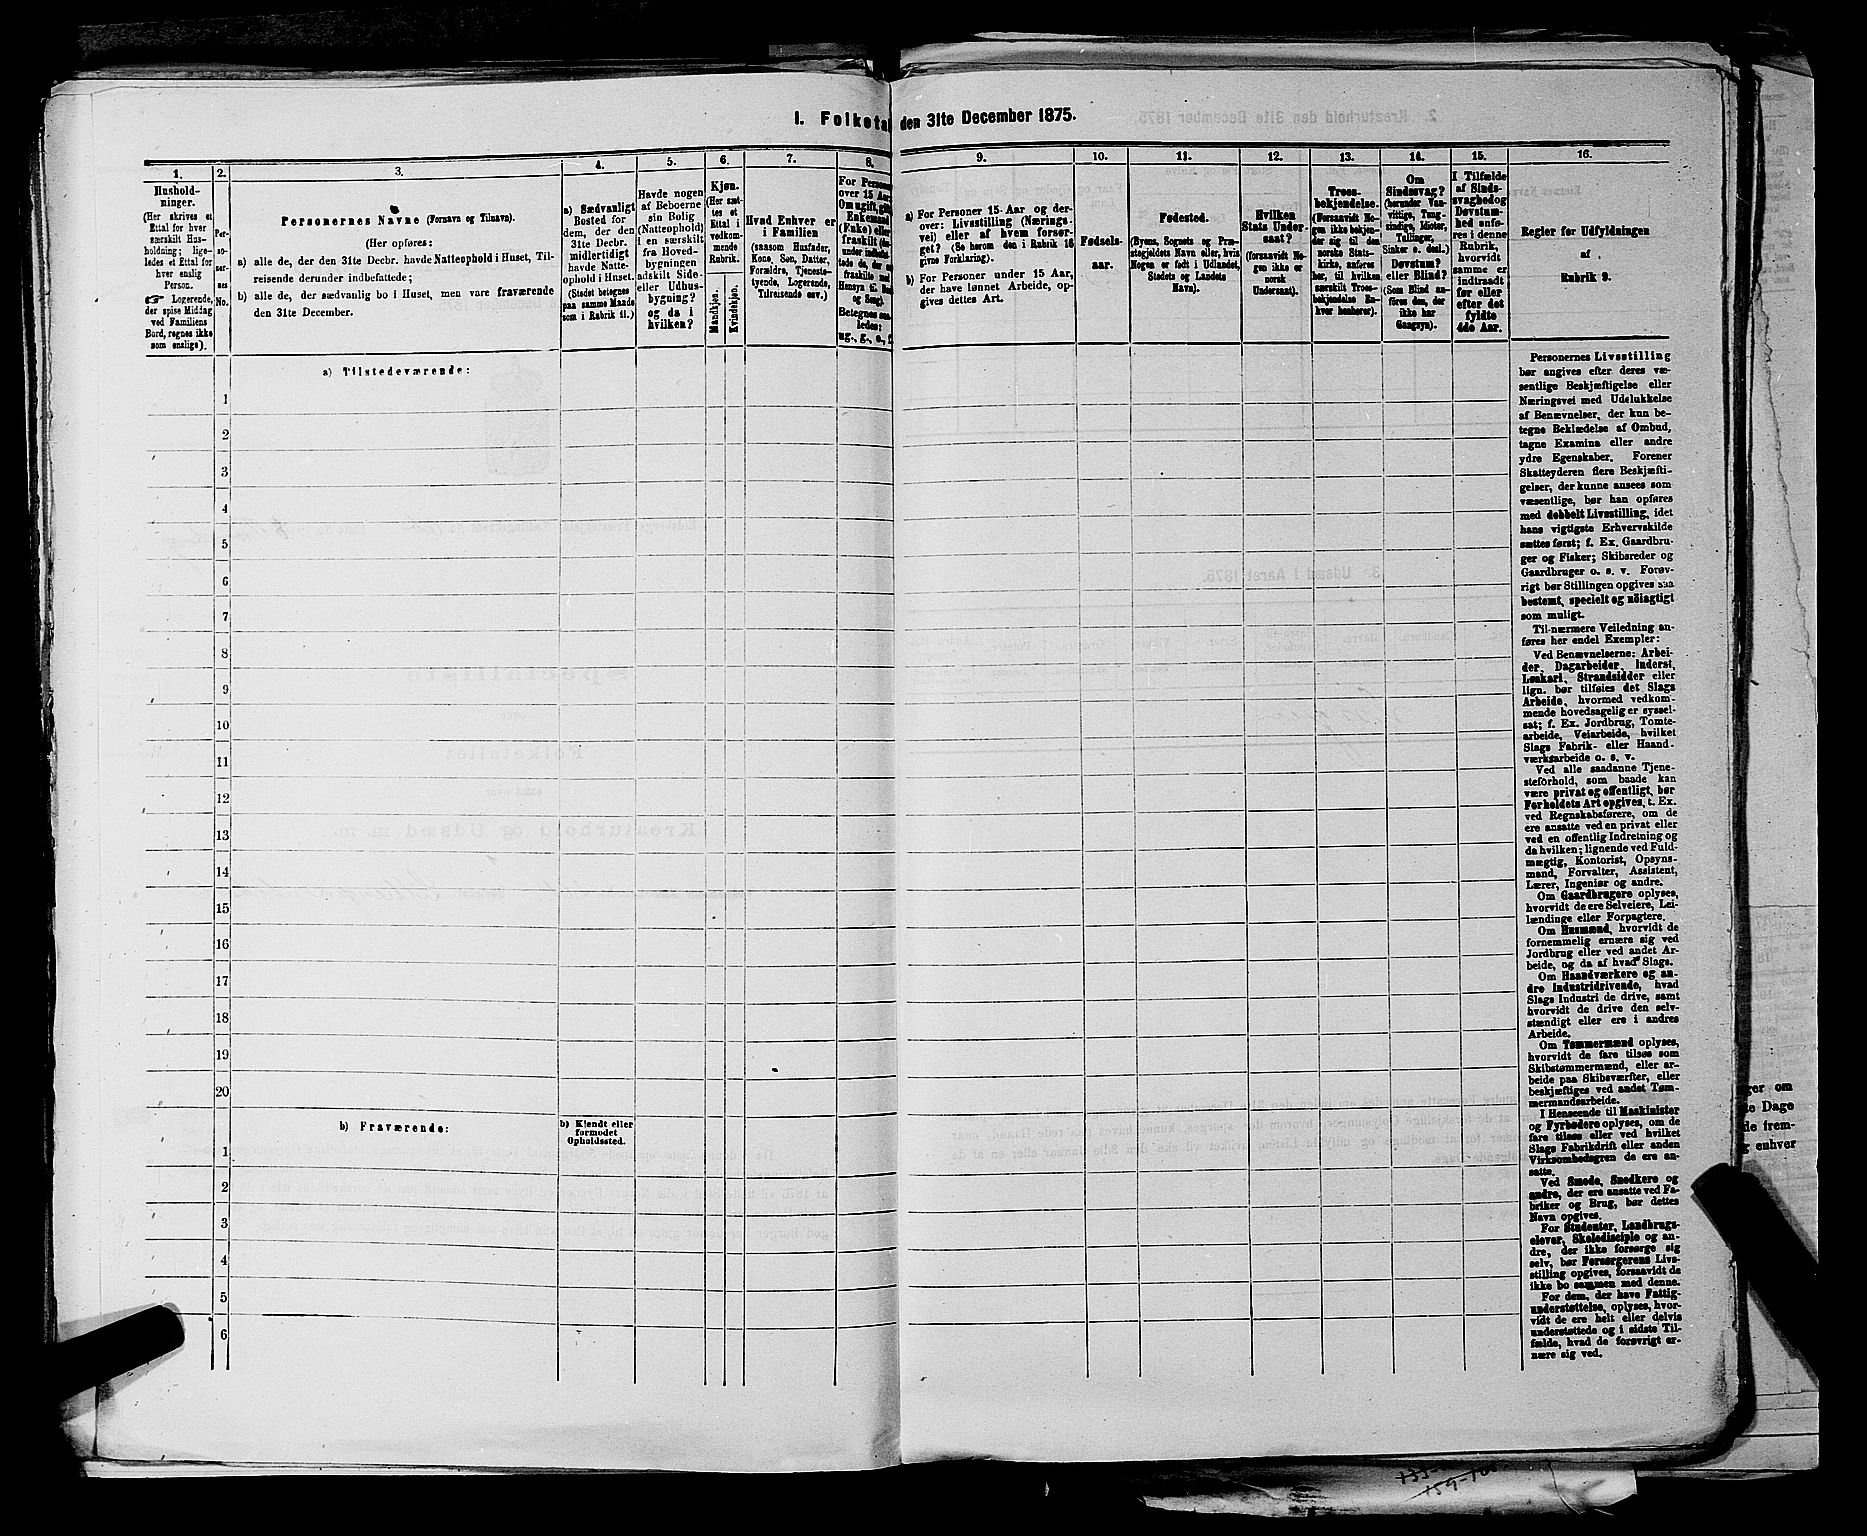 1. Folketal den 31te December 1875.
1.
Hushold-
ninger.
(Her skrives et
Ettal for hver
særskilt Hus-
holdning; lige-
ledes et Ettal for
hver enslig
Person.
☞ Logerende,
der spise Middag
ved Familiens
Bord, regnes ikke
som enslige).
2.
Per-
so-
ner-
nes
No.
3.
Personernes Navne (Fornavn og Tilnavn).
(Her opføres:
a) alle de, der den 31te Decbr. havde Natteophold i Huset, Til-
reisende derunder indbefattede;
b) alle de, der sædvanlig bo i Huset, men vare fraværende
den 31te December.
4.
a) Sædvanligt
Bosted for
dem, der den
31te Decbr.
midlertidigt
havde Natte-
ophold i Huset.
(Stedet betegnes
paa samme Maade
som i Rubrik 11.)
5.
Havde nogen
af Beboerne
sin Bolig
(Natteophold)
i en særskilt
fra Hoved-
bygningen
adskilt Side-
eller Udhus-
bygning?
og da i
hvilken?
6.
Kjøn.
(Her sæt-
tes et
Ettal i
vedkom-
mende
Rubrik.
Mandkjøn.
Kvindekjøn.
7.
Hvad Enhver er
i Familien
(saasom Husfader,
Kone, Søn, Datter,
Forældre, Tjeneste-
tyende, Logerende,
Tilreisende osv.)
8.
For Persone
over 15 Aar
Om ugift, gift,
Enkemand
(Enke) eller
fraskilt
Betegnes saa-
ledes:
ug., g., e., f.
9.
a) For Personer 15 Aar og der-
over: Livsstilling (Nærings-
vei) eller af hvem forsør-
get? (Se herom den i Rubrik 16
givne Forklaring).
b) For Personer under 15 Aar,
der have lønnet Arbeide, op-
gives dettes Art.
10.
Fødsels-
aar.
11.
Fødested.
(Byens, Sognets og Præ-
stegjeldets Navn eller, hvis
Nogen er født i Udlandet,
Stedets og Landets
Navn).
12.
Hvilken
Stats Under-
saat?
(forsaavidt No-
gen ikke er
norsk
Undersaat).
13.
Troes-
bekjendelse.
(Forsaavidt No-
gen ikke bekjen-
der sig til den
norske Stats-
kirke, anføres
her, til hvilken
særskilt Troes-
bekjendelse En-
hver henhører).
14.
Om
Sindssvag?
(herunder Van-
vittige, Tung-
sindige, Idioter,
Tullinger,
Sinker o. desl.)
Døvstum?
eller Blind?
(Som Blind an-
føres den, der
ikke har
Gangsyn).
15.
I Tilfælde
af Sinds-
svaghed og
Døvstum-
hed anfø-
res i denne
Rubrik,
hvorvidt
samme er
indtraadt
før eller
efter det
fyldte
4de Aar.
16.
Regler for Udfyldningen
af
Rubrik 9.
a) Tilstedeværende:
1
2
3
4
5
6
7
8
9
10
11
12
13
14
15
16
17
18
19
20
b) Fraværende:
b) Kjendt eller
formodet
Opholdssted.
1
2
3
4
5
6
Personernes Livsstilling
bør angives efter deres væ-
sentlige Beskjæftigelse eller
Næringsvei med Udelukkelse
af Benævnelser, der kun be-
tegne Beklædelse af Ombud,
tagne Examina eller andre
ydre Egenskaber. Forener
Skatteyderen flere Beskjæfti-
gelser, der kunne ansees som
væsentlige, bør han opføres
med dobbelt Livsstilling, idet
hans vigtigste Erhvervskilde
sættes først; f. Ex. Gaardbru-
ger og Fisker; Skibsreder og
Gaardbruger o. s. v. Forøv-
rigt bør Stillingen opgives saa
bestemt, specielt og nöiagtigt
som muligt.
Til nærmere Veiledning an-
føres her endel Exempler:
Ved Benævnelserne: Arbei-
der, Dagarbeider, Inderst,
Løskarl, Strandsidder eller
lign. bør tilføies det Slags
Arbeide, hvormed vedkom-
mende hovedsagelig er syssel-
sat; f. Ex. Jordbrug, Tomte-
arbeide, Veiarbeide, hvilket
Slags Fabrik- eller Haand-
værksarbeide o. s. v.
Ved alle saadanne Tjene-
steforhold, som baade kan
være privat og offentligt, bør
Forholdets Art opgives, t. Ex.
ved Regnskabsførere, om de
ere ansatte ved en privat eller
ved en offentlig Indretning og
da hvilken; lignende ved Fuld-
mægtig, Kontorist, Opsyns-
mand, Forvalter, Assistent,
Lærer, Ingeniør og andre.
Om Gaardbrugere oplyses,
hvorvidt de ere Selveiere, Lei-
lændinge eller Forpagtere.
Om Husmænd, hvorvidt de
fornemmelig ernære sig ved
Jordbrug eller ved andet Ar-
beide, og da af hvad Slags.
Om Haandværkere og an-
dre Industridrivende, hvad
Slags Industri de drive, samt
hvorvidt de drive den selv-
stændigt eller ere i andres
Arbeide.
Om Tømmermænd oplyses,
hvorvidt de fare tilsøs som
Skibstømmermænd, eller ar-
beide paa Skibsværfter, eller
beskjæftiges ved andet Tøm-
mermandsarbeide.
I Henseende til Maskinister
og Fyrbødere oplyses, om de
fare tilsøs eller ved hvilket
Slags Fabrikdrift eller anden
Virksomhedsgren de ere an-
satte.
Ved Smede, Snedkere og
andre, der ere ansatte ved Fa-
briker og Brug, bør dettes
Navn opgives.
For Studenter, Landbrugs-
elever, Skoledisciple og an-
dre, der ikke forsørge sig
selv, bør Forsørgerens Livs-
stilling opgives, forsaavidt de
ikke bo sammen med denne.
For dem, der have Fattig-
understøttelse, oplyses, hvor-
vidt de ere helt eller delvis
understøttede og i sidste Til-
fælde, hvad de forøvrigt er-
nære sig ved.
ger om
e Dage
de frem-
enhver